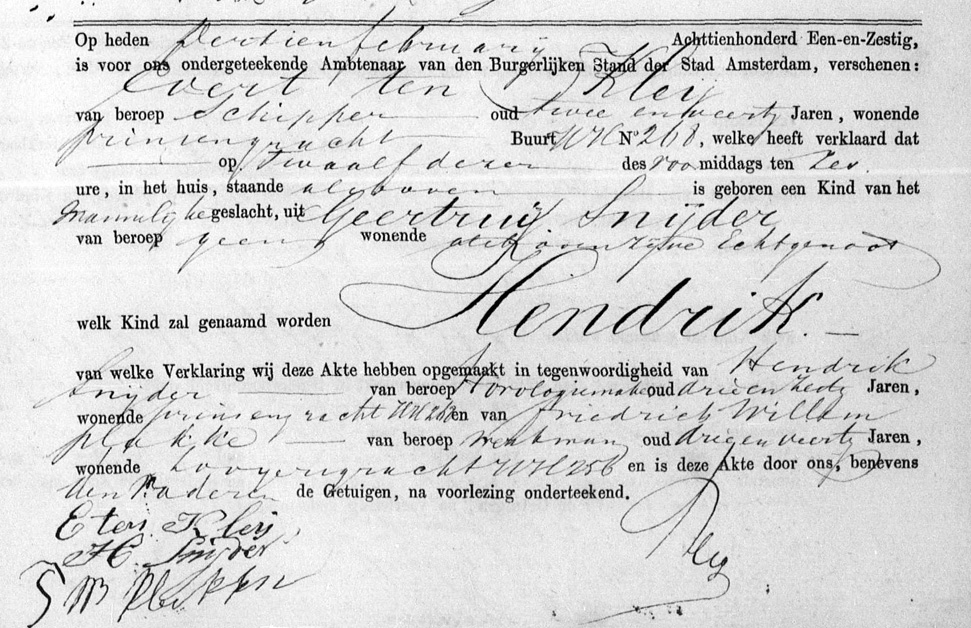 Op heden Dertien februarij Achttienhonderd Een-en-Zestig,
is voor ons ondergeteekende Ambtenaar van den Burgerlijken Stand der Stad Amsterdam, verschenen:
Evert ten Kleij
van beroep Schipper oud twee en veertig Jaren, wonende
prinsengracht Buurt WW No 268, welke heeft verklaard dat
op twaalf dezer des voormiddags ten zes
ure, in het huis, staande alsboven is geboren een Kind van het
Mannelijke geslacht, uit Geertruij Snijder
van beroep geen wonende alsboven zijne Echtgenoot
welk Kind zal genaamd worden Hendrik
van welke Verklaring wij deze Akte hebben opgemaakt in tegenwoordigheid van Hendrik
Snijder van beroep Horologiemaker oud Jaren,
wonende prinsengracht en van Friedrich Willem
plakke van beroep werkman oud drie en veertig Jaren,
wonende Looyersgracht 256 en is deze Akte door ons, benevens
den vader en de Getuigen, na voorlezing onderteekend.
E ten Kleij
H Snijder